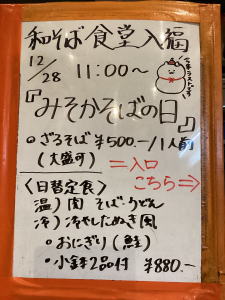 和そば食堂入福
12/28 11:00〜
今年ラストです
『みそかそばの日』
・ざるそば ¥500-/1人前
(大盛可)
⇒入口
こちら⇒
〈日替定食〉
温)肉そばうどん
冷)冷やしたぬき風
・おにぎり(鮭)
・小鉢2品付 ¥880-